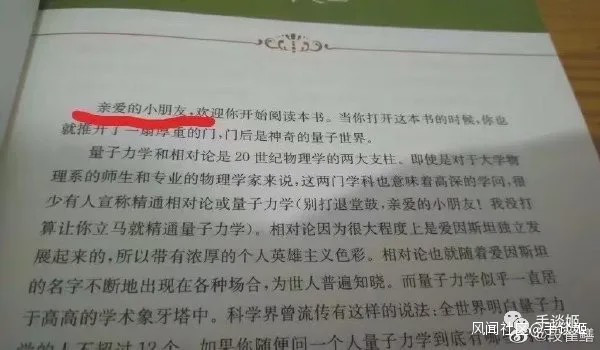 亲爱的小朋友，欢迎你开始阅读本书。当你打开这本书的时候，你也
就推开了一扇厚重的门，门后是神奇的量子世界。
量子力学和相对论是20世纪物理学的两大支柱。即使是对于大学物
理系的师生和专业的物理学家来说，这两门学科也意味着高深的学问，很
少有人宣称精通相对论或量子力学（别打退堂鼓，亲爱的小朋友！我没打
算让你立马就精通量子力学）。相对论因为很大程度上是爱因斯坦独立发
展起来的，所以带有浓厚的个人英雄主义色彩。相对论也就随着爱因斯坦
的名字不断地出现在各种场合，为世人普遍知晓。而量子力学似乎一直居
于高高的学术象牙塔中。科学界曾流传有这样的说法：全世界明白量子力
学的人不超过12个。如果你随便问一个人量子力学到底有哪些
手谈姬
风闻社区@手谈姬